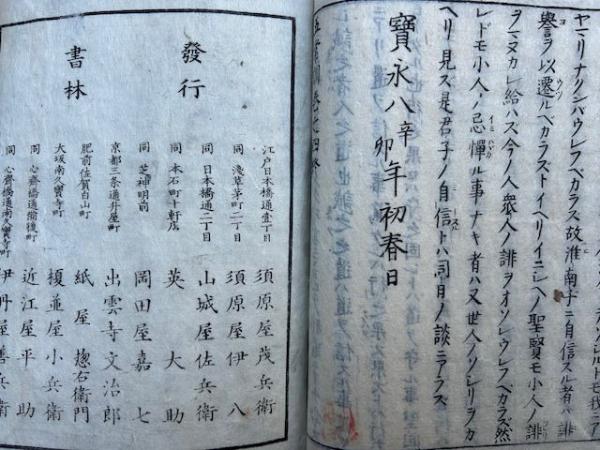 ヤマリナクンバウレフベカラス故淮南子ニ自信スル者ハ誹
譽ヲ以遷ルベカラズトイヘリイニシヘノ聖賢モ小人ノ誹
ヲマヌカレ給ハス今ノ人衆人ノ誹ヲオソレウレフベカラズ然
レドモ小人ノ忌憚ル事ナキ者ハ又世人ノソシリヲカ
ヘリ見ス是君子ノ自信トハ同日ノ談ニアラス
寶永八辛卯年初春日
發行
書林
江戸日本橋通壹丁目 須原屋茂兵衛
同 淺草茅町二丁目 須原屋伊八
同 日本橋通二丁目 山城屋佐兵衛
同 本石町十軒店 英大助
同 芝神明前 岡田屋嘉七
京都三条通升屋町 出雲寺文治郎
肥前佐賀白山町 紙屋惣右衛門
大坂南久寳寺町 榎並屋小兵衛
同 心齋橋通備後町 近江屋平助
同 心齋橋通南久寳寺町 伊丹屋善兵衛